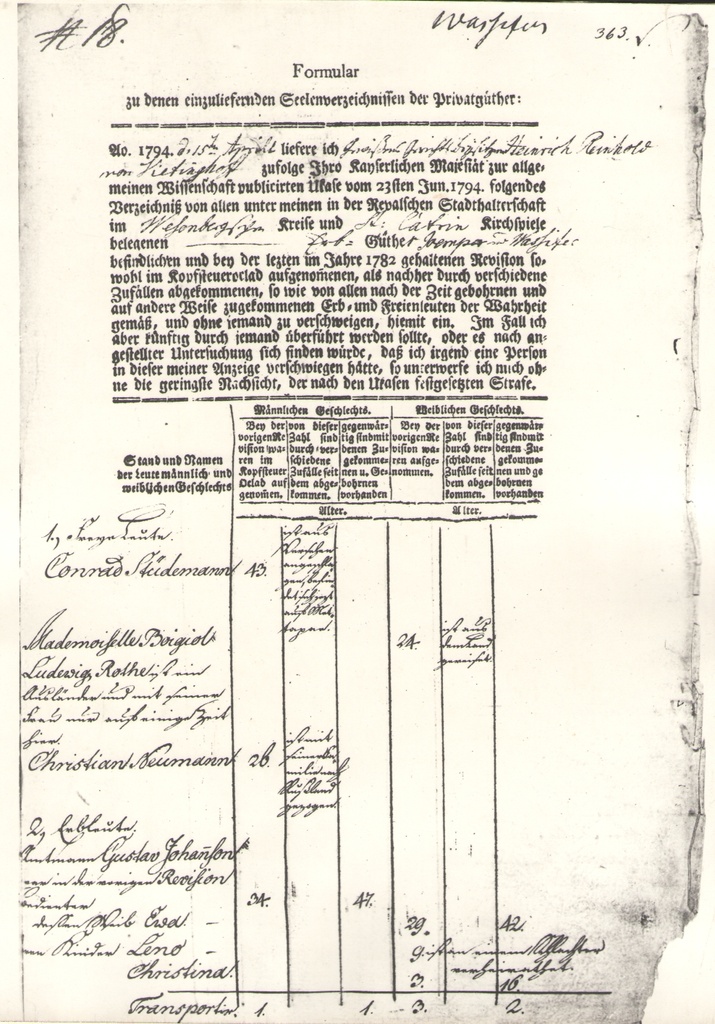 # 18.
Wassifer
363.
Formular
zu denen einzuliefernden Seelenverzeichnissen der Privatgüther:
Ao. 1794. d. 15ten April liefere ich Heinrich Reinhold
von Vietinghoff zufolge Ihro Kayserlichen Majestät zur allge-
meinen Wissenschaft publicirten Ukase vom 23sten Jun. 1794. folgendes
Verzeichniß von allen unter meinen in der Revalschen Stadthalterschaft
im Wesenbergschen Kreise und St: Catrin Kirchspiele
belegenen Erb- Güther Wassifer
befindlichen und bey der lezten im Jahre 1782 gehaltenen Revision so-
wohl im Kopfsteueroclad aufgenomenen, als nachher durch verschiedene
Zufällen abgekommenen, so wie von allen nach der Zeit gebohrnen und
auf andere Weise zugekommenen Erb- und Freienleuten der Wahrheit
gemäß, und ohne jemand zu verschweigen, hiemit ein. Im Fall ich
aber künftig durch jemand überführt werden sollte, oder es nach an-
gestellter Untersuchung sich finden würde, daß ich irgend eine Person
in dieser meiner Anzeige verschwiegen hätte, so unterwerfe ich mich oh-
ne die geringste Nachsicht, der nach den Ukasen festgesetzten Strafe.
Stand und Namen
der Leute männlich- und
weiblichen Geschlechts
Männlichen Geschlechts.
Bey der
vorigen Re
vision wa-
ren im
Kopfsteuer
Oclad auf
genomen.
von dieser
Zahl sind
durch ver-
schiedene
Zufälle seit
dem abge-
kommen.
gegenwär-
tig sind mit
denen Zu-
gekomme-
nen u. Ge-
bohrnen
vorhanden
Alter.
Weiblichen Geschlechts.
Bey der
vorigen Re
vision wa-
ren aufge-
nommen.
von dieser
Zahl sind
durch ver-
schiedene
Zufälle seit
dem abge-
kommen.
gegenwär-
tig sind mit
denen Zu-
gekomme-
nen und ge
bohrnen
vorhanden
Alter.
1., Freye Leute.
Conrad Stüdemann 43. ist aus
Versehen
Mademoiselle Boigiol 24. ist aus
dem Land
gereiset.
Ludewig Rothe ist ein
Ausländer und mit seiner
Frau nur auf einige Zeit
hier.
Christian Neumann 26. ist mit
seiner Fa-
milie nach
Rußland
gezogen.
2, Erbleute.
Amtmann Gustav Johannson
in der vorigen Revision
34. 47.
dessen Weib Ewa - 29. 42.
Kinder Leno - 9. ist an einem
verheirathet.
Christina. 3. 16.
Transportir. 1. 1. 3. 2.